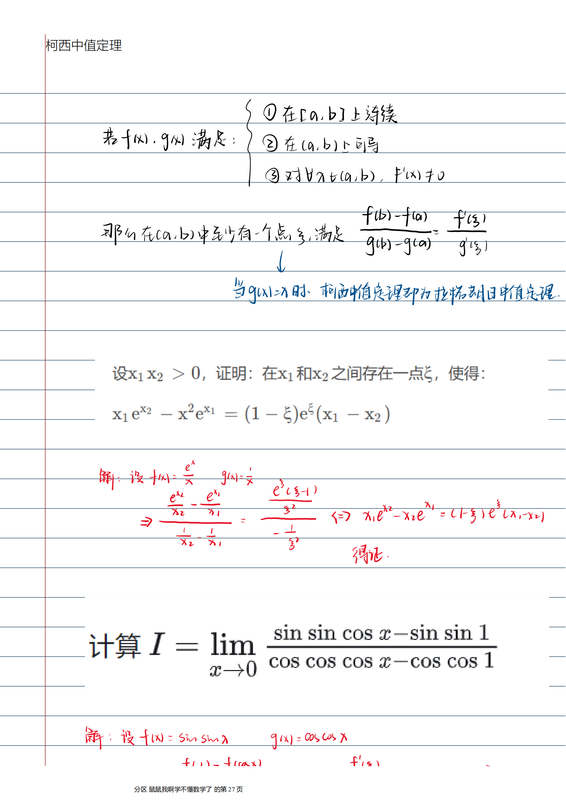 柯西中值定理
① 在[a,b]上连续
若f(x),g(x)满足: ② 在(a,b)上可导
③ 对∀x∈(a,b), F'(x)≠0
那么在(a,b)中至少有一个点ξ,满足 (f(b)-f(a))/(g(b)-g(a)) = f'(ξ)/g'(ξ)
↓
当g(x)=x时,柯西中值定理即为拉格朗日中值定理.
设x₁x₂ > 0，证明：在x₁和x₂之间存在一点ξ，使得：
x₁e^{x₂} − x²e^{x₁} = (1 − ξ)e^ξ(x₁ − x₂)
解: 设 f(x)=e^x/x g(x)=1/x
⇒ (e^{x₂}/x₂ - e^{x₁}/x₁)/(1/x₂ - 1/x₁) = (e^ξ(ξ-1)/ξ²)/(-1/ξ²) ⇔ x₁e^{x₂}-x₂e^{x₁}=(1-ξ)e^ξ(x₁-x₂)
得证.
计算 I = lim_{x→0} (sin sin cos x − sin sin 1)/(cos cos cos x − cos cos 1)
解: 设f(x)=sin sin x g(x)=cos cos x
分区 鼠鼠我啊学不懂数学了 的第 27 页